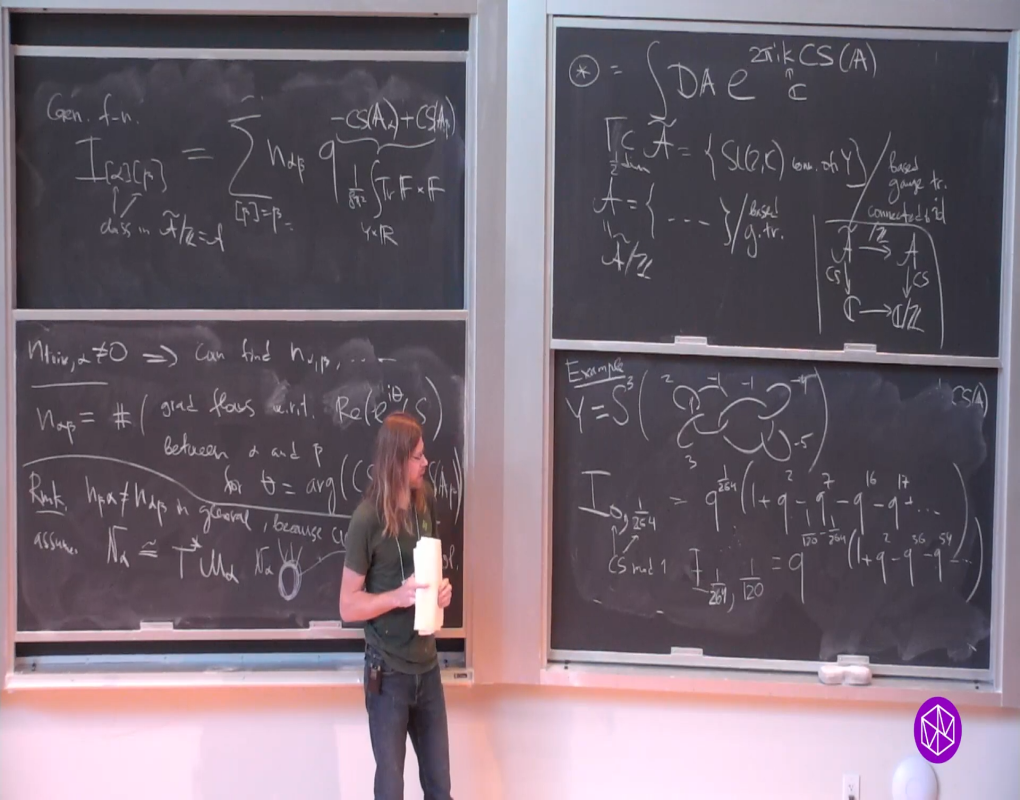 Gen. f-n.
I_{[α][β]} = Σ_{[β]=β} n_{αβ} q^{-CS(A_α)+CS(A_β)}
1/8π² ∫_{Y×ℝ} Tr F×F
class in Ã/ℤ=A
n_{triv,α}≠0 => can find n_{α,β}, ...
n_{αβ} = # ( grad flows w.r.t. Re(e^{iθ}S)
between α and β
for θ = arg(
Rmk. n_{βα}≠n_{αβ} in general, because
assume. Ñ_α ≅ T*M_α Ñ_α
⊛ = ∫ DA e^{2πik CS(A)}
ℂ
Γ ⊂ Ã = { SL(2,ℂ) conn. of Y } / based gauge tr. connected to id
½ dim
A = { ---- } / based g. tr.
Ã/ℤ
Ã →/ℤ A
CS CS
ℂ → ℂ/ℤ
Example
CS(A)
Y = S³ ( 2 -1 -1 3 -5 )
I_{0, 1/264} = q^{1/264} (1+q²-q⁷-q¹⁶-q¹⁷...)
CS mod 1
I_{1/264, 1/120} = q^{1/120 - 1/264} (1+q²-q³⁶-q⁵⁴-...)